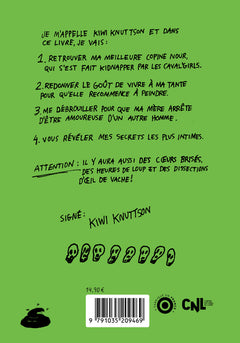 JE M'APPELLE KIWI KNUTTSON ET DANS
CE LIVRE, JE VAIS :
1. RETROUVER MA MEILLEURE COPINE NOUR,
QUI S'EST FAIT KIDNAPPER PAR LES CAVAL'GIRLS.
2. REDONNER LE GOÛT DE VIVRE À MA TANTE
POUR QU'ELLE RECOMMENCE À PEINDRE.
3. ME DÉBROUILLER POUR QUE MA MÈRE ARRÊTE
D'ÊTRE AMOUREUSE D'UN AUTRE HOMME.
4. VOUS RÉVÉLER MES SECRETS LES PLUS INTIMES.
ATTENTION : IL Y AURA AUSSI DES CŒURS BRISÉS,
DES HEURES DE LOUP ET DES DISSECTIONS
D'ŒIL DE VACHE !
SIGNÉ :
KIWI KNUTTSON
14,90 €
9 791035 209469
CNL